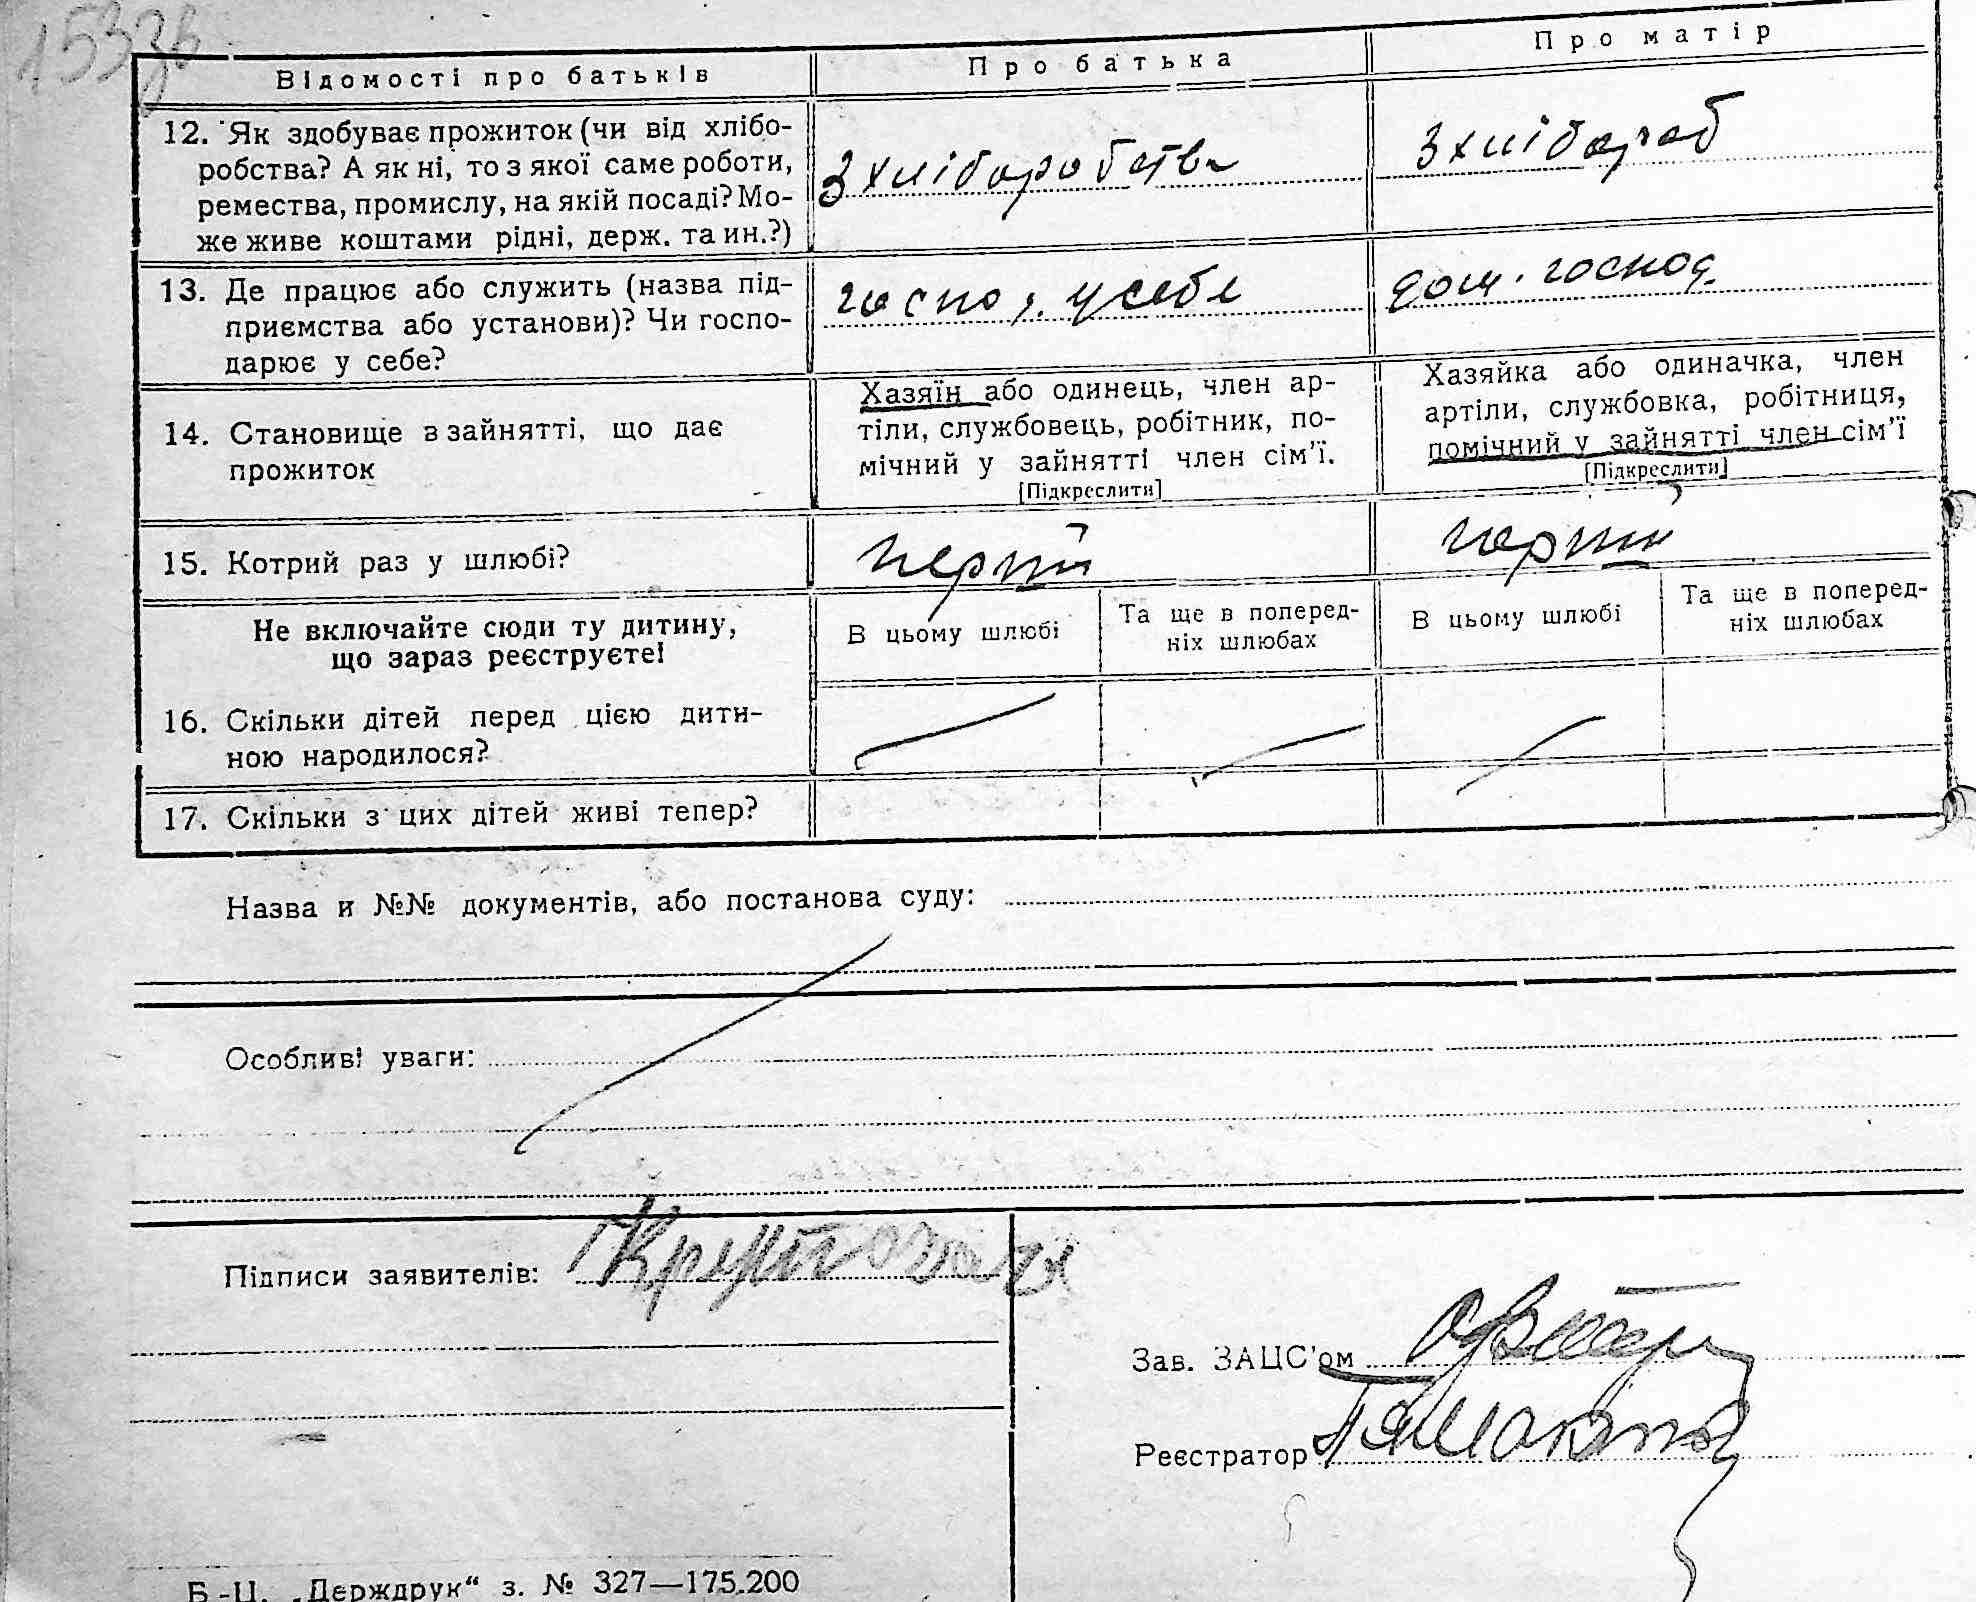 153зв
Відомості про батьків
Про батька
Про матір
12. Як здобуває прожиток (чи від хлібо-
робства? А як ні, то з якої саме роботи,
ремества, промислу, на якій посаді? Мо-
же живе коштами рідні, держ. та ин.?)
З хліборобства
З хлібороб
13. Де працює або служить (назва під-
приємства або установи)? Чи госпо-
дарює у себе?
госпо, у себе
дом. господ.
14. Становище в зайнятті, що дає
прожиток
Хазяїн або одинець, член ар-
тіли, службовець, робітник, по-
мічний у зайнятті член сім'ї.
[Підкреслити]
Хазяйка або одиначка, член
артіли, службовка, робітниця,
помічний у зайнятті член сім'ї
[Підкреслити]
15. Котрий раз у шлюбі?
перший
перший
Не включайте сюди ту дитину,
що зараз реєструєте!
В цьому шлюбі
Та ще в поперед-
ніх шлюбах
В цьому шлюбі
Та ще в поперед-
ніх шлюбах
16. Скільки дітей перед цією дити-
ною народилося?
17. Скільки з цих дітей живі тепер?
Назва и №№ документів, або постанова суду:
Особливі уваги:
Підписи заявителів:
Зав. ЗАЦС'ом
Реєстратор
Б-Ц. „Держдрук“ з. № 327—175.200